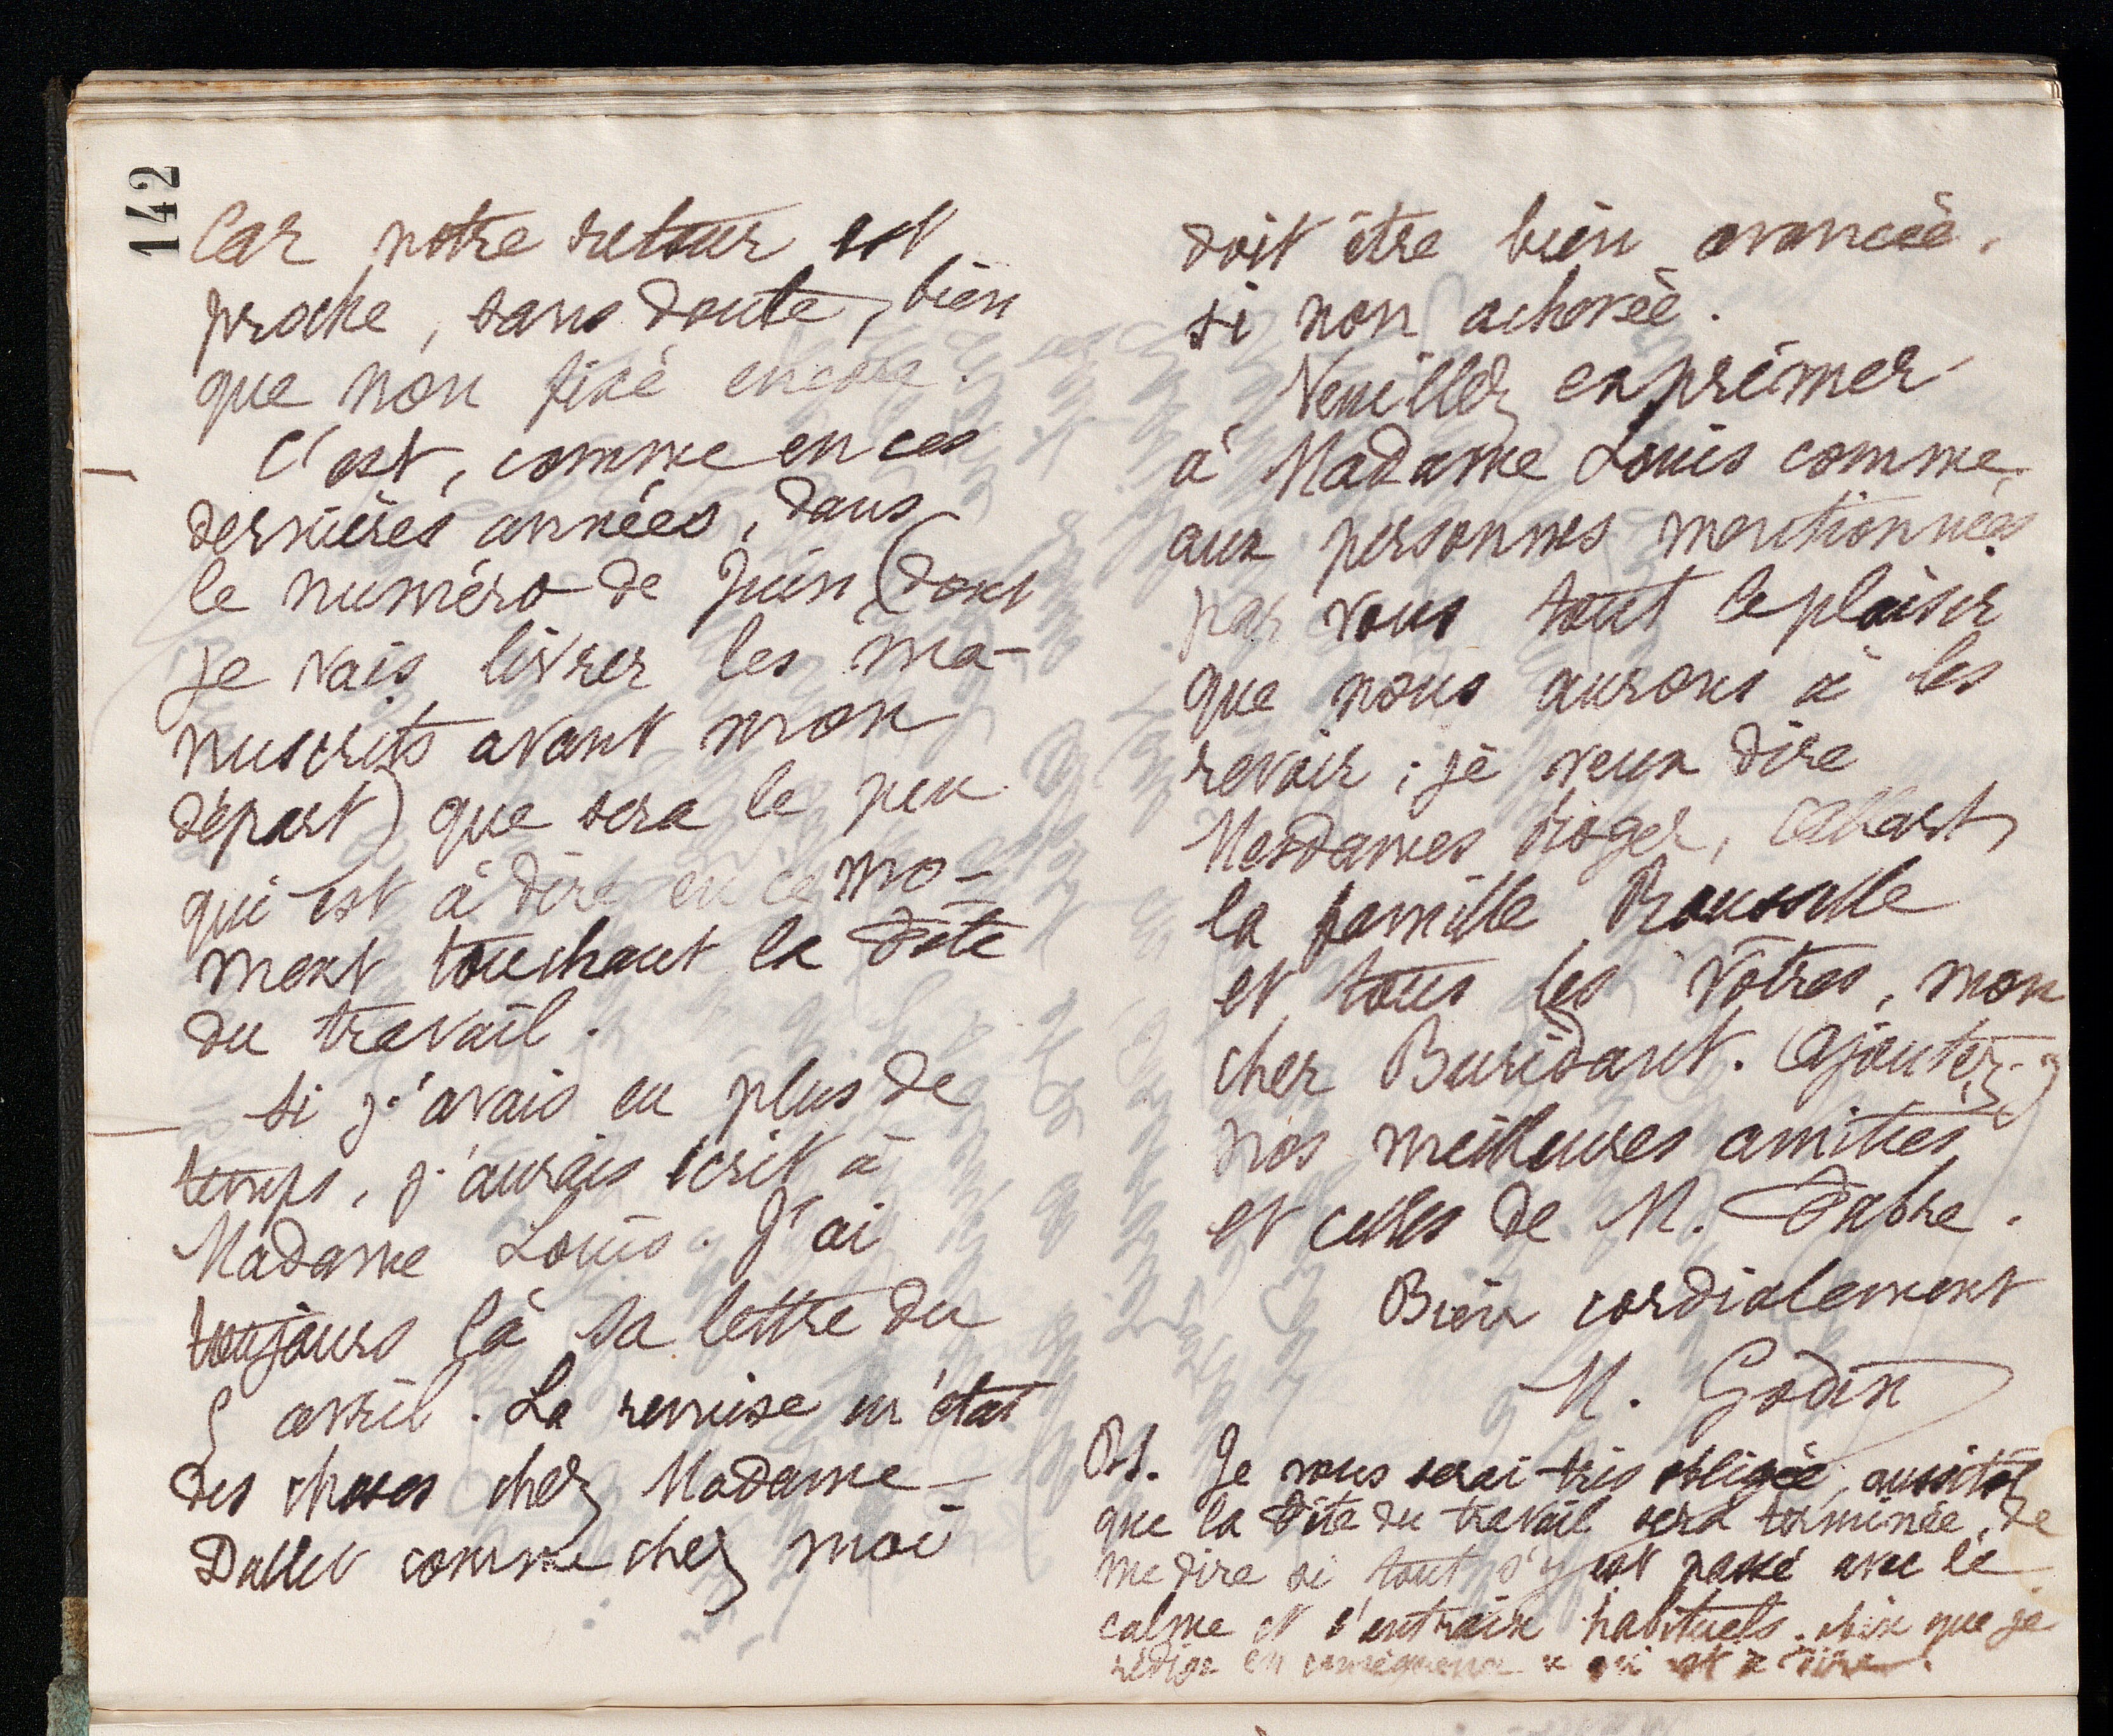 142
Car notre retour est
proche, sans doute, bien
que non fixé encore.
C'est, comme en ces
dernières années, dans
le numéro de Juin (dont
je vais livrer les ma-
nuscrits avant mon
départ) que sera le peu
qui est à dire en ce mo-
ment touchant la Fête
du travail.
Si j'avais eu plus de
temps, j'aurais écrit à
Madame Louis. J'ai
toujours là sa lettre du
5 avril. La remise en état
des choses chez Madame
Dallet comme chez moi
doit être bien avancée,
si non achevée.
Veuillez exprimer
à Madame Louis comme
aux personnes mentionnées
par vous tout le plaisir
que nous aurons à les
revoir ; je veux dire
Mesdames Roger, Allart,
la famille Rousselle
et tous les vôtres, mon
cher Buridant. Ajoutez-y
nos meilleures amitiés
et celles de M. Fabre.
Bien cordialement
M. Godin
PS. Je vous serai très obligée, aussitôt
que la Fête du travail sera terminée, de
me dire si tout s'y est passé avec le
calme et l'entrain habituels. afin que je
rédige en conséquence ce qui est à dire.